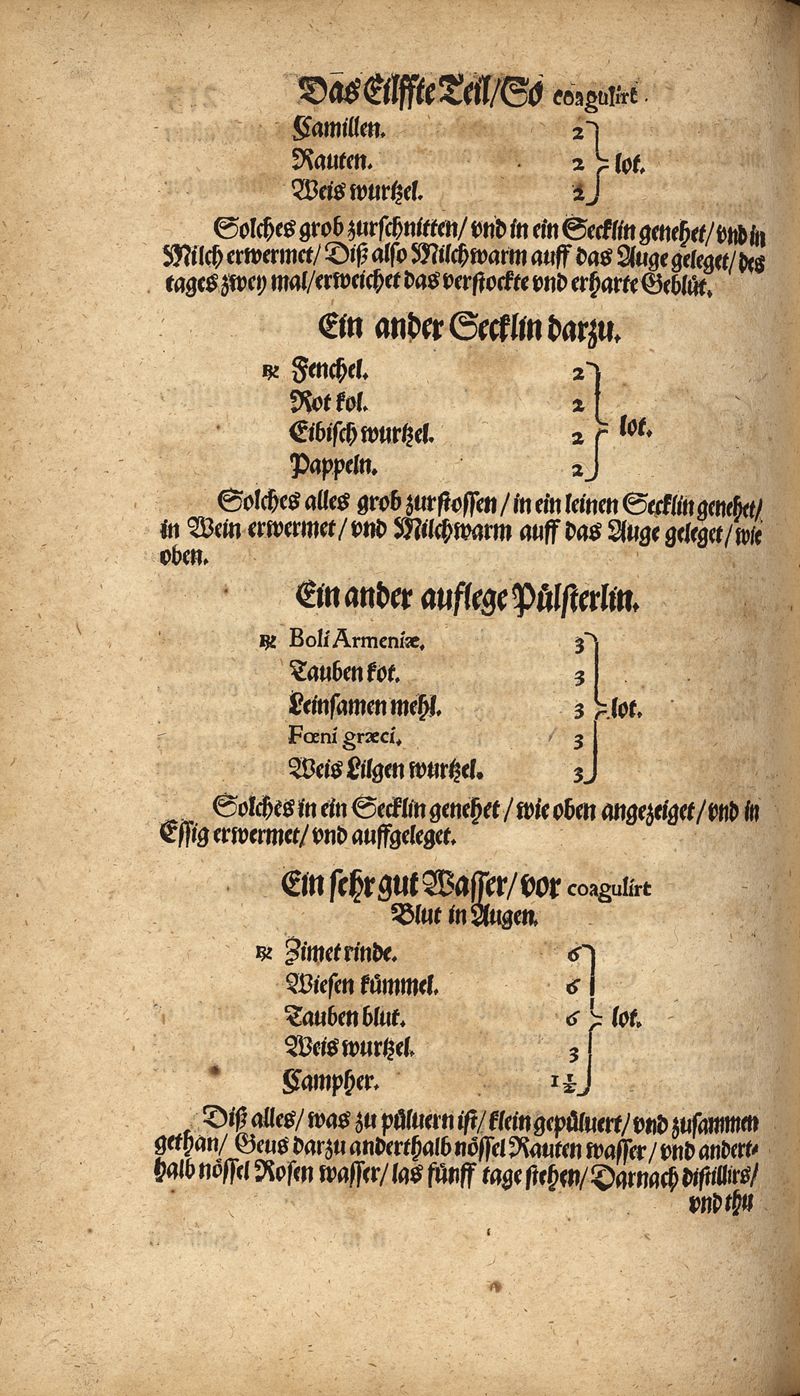 Das Eilffte Teil/ So coagulirt
Camillen. 2
Rauten. 2 lot.
Weis wurtzel. 2
Solches grob zurschnitten/ vnd in ein Secklin genehet/ vnd in
Milch erwermet/ Diß also Milchwarm auff das Auge geleget/ des
tages zwey mal/ erweichet das verstockte vnd erharte Geblüt.
Ein ander Secklin darzu.
℞ Fenchel. 2
Rot kol. 2
Eibisch wurtzel. 2 lot.
Pappeln. 2
Solches alles grob zurstossen/ in ein leinen Secklin genehet/
in Wein erwermet/ vnd Milchwarm auff das Auge geleget/ wie
oben.
Ein ander auflege Pülsterlin.
℞ Boli Armeniæ. 3
Tauben kot. 3
Leinsamen mehl. 3 lot.
Fœni græci. 3
Weis Lilgen wurtzel. 3
Solches in ein Secklin genehet/ wie oben angezeiget/ vnd in
Essig erwermet/ vnd auffgeleget.
Ein sehr gut Wasser/ vor coagulirt
Blut in Augen.
℞ Zimet rinde. 6
Wiesen kümmel. 6
Tauben blut. 6 lot.
Weis wurtzel. 3
Campher. 1½
Diß alles/ was zu püluern ist/ klein gepüluert/ vnd zusammen
gethan/ Geus darzu anderthalb nössel Rauten wasser/ vnd andert-
halb nössel Rosen wasser/ las fünff tage stehen/ Darnach distillirs/
vnd thu